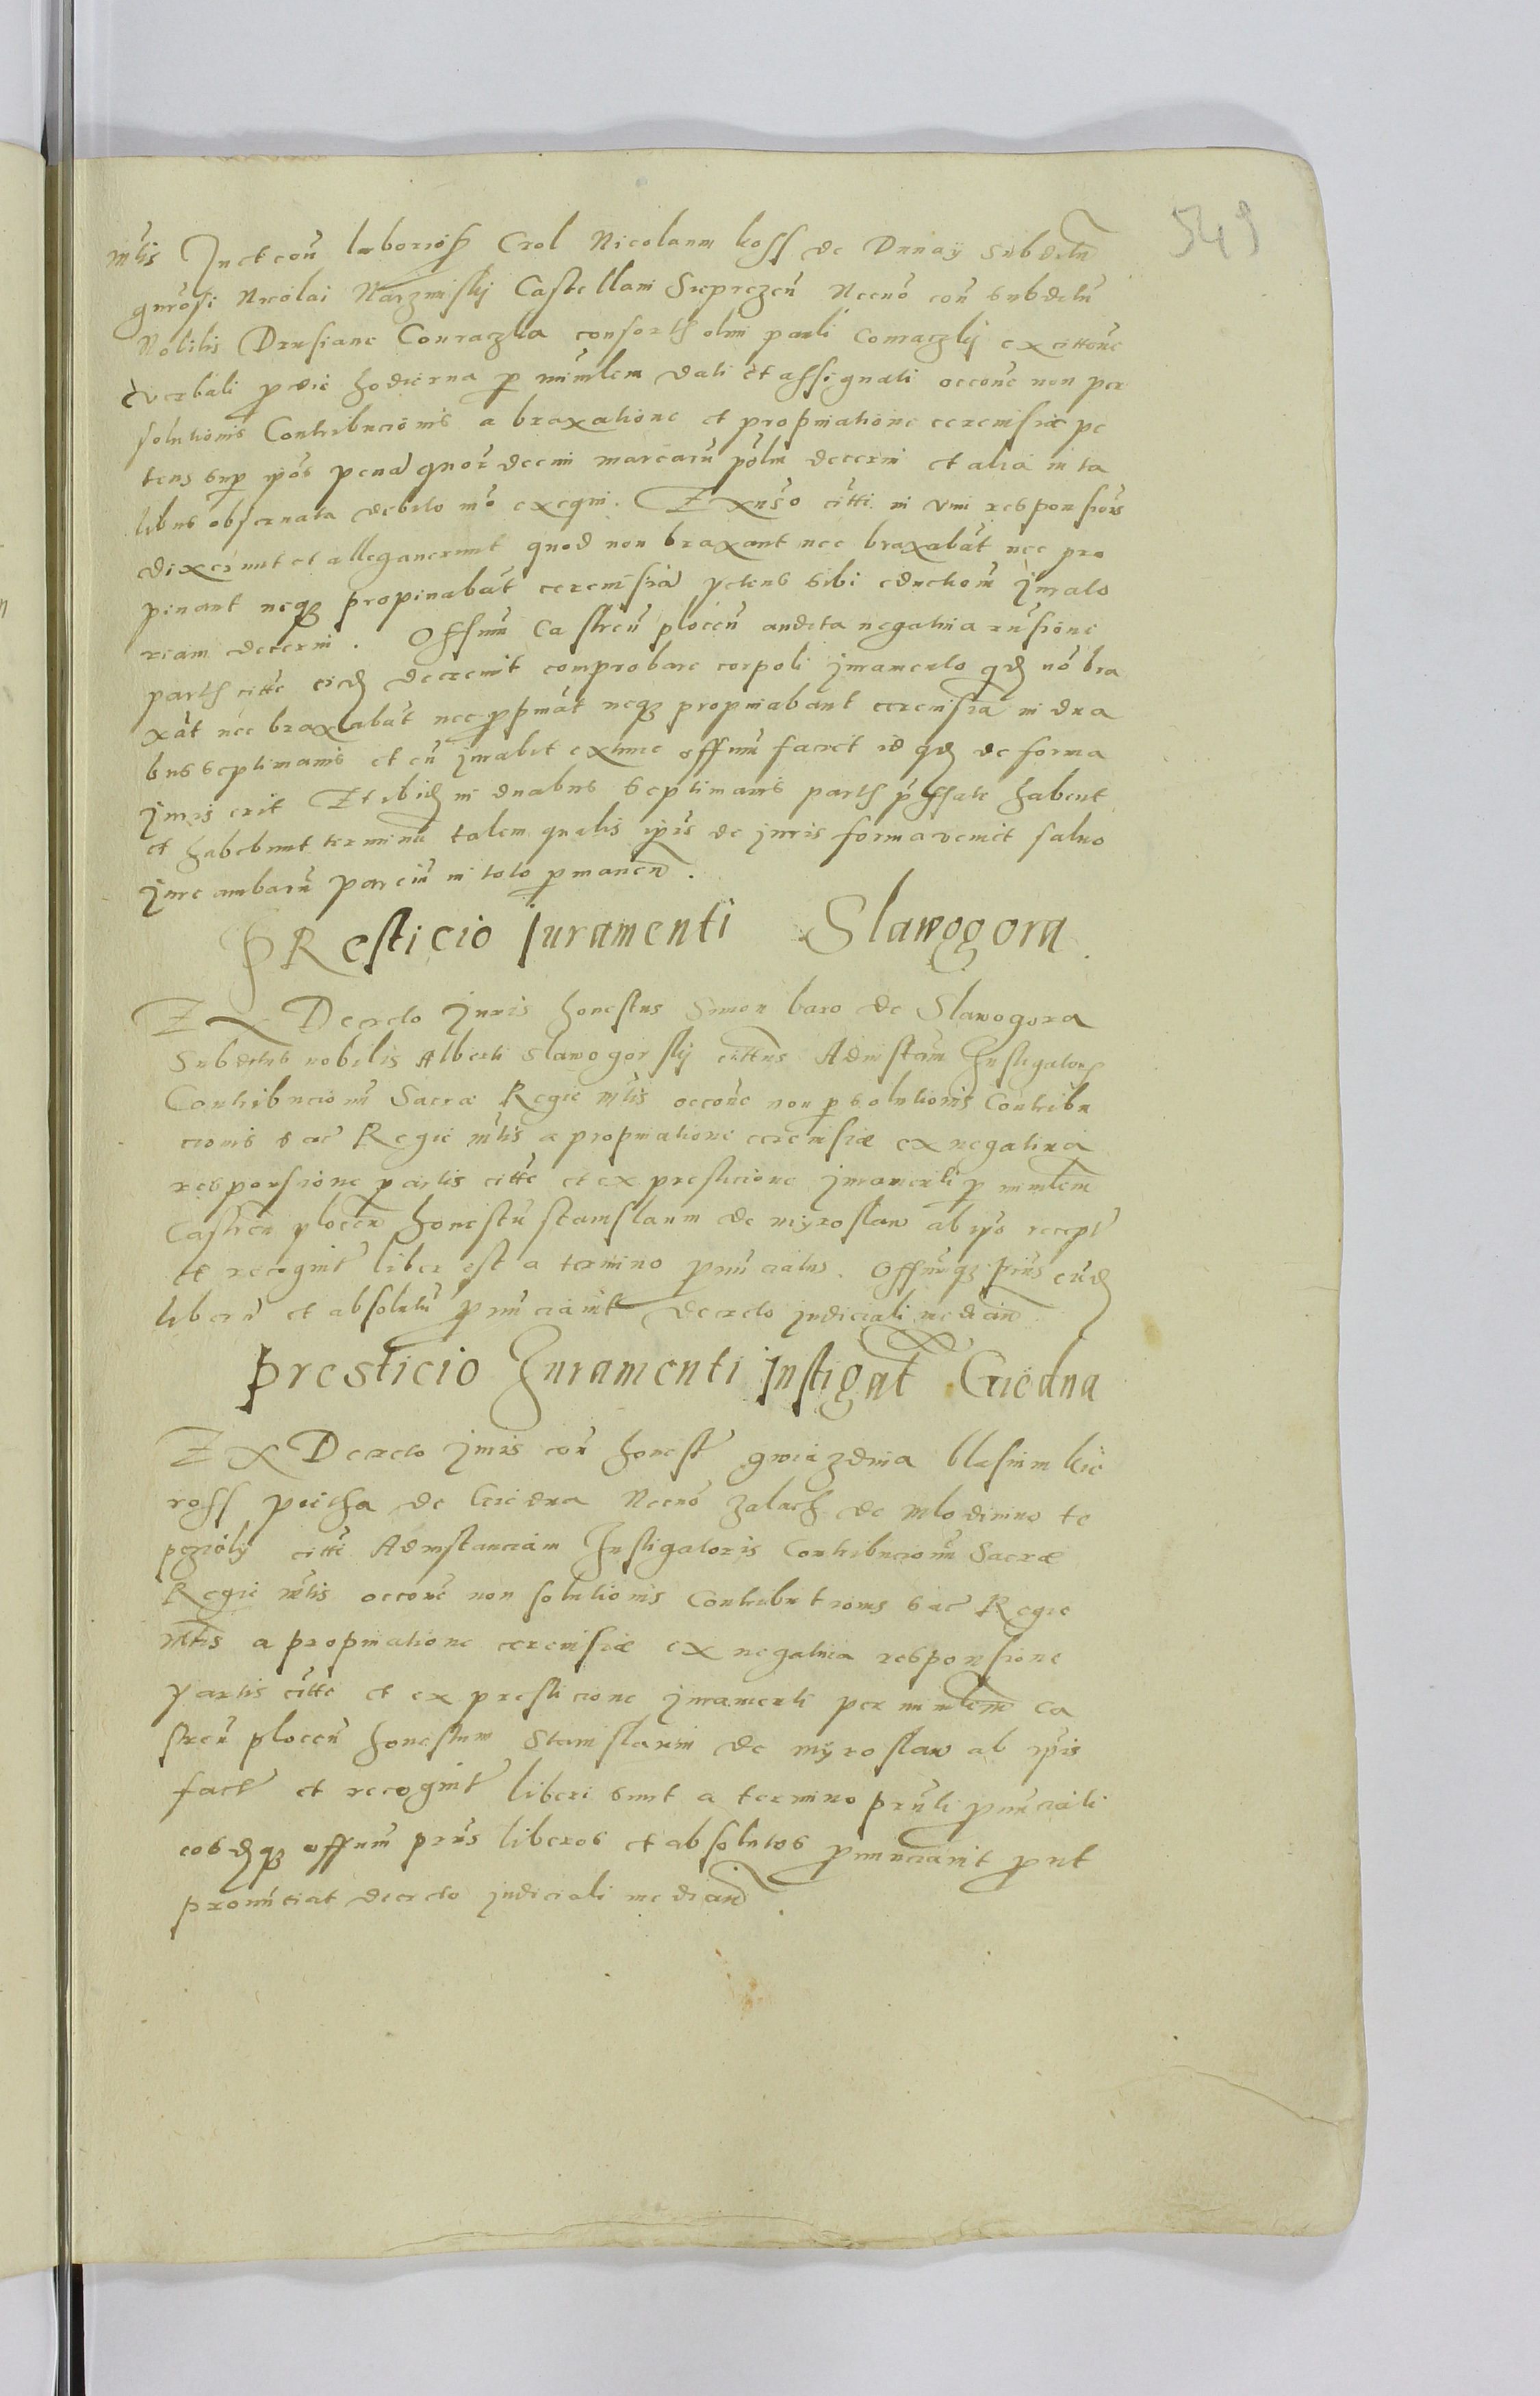 549
mtis Juct coū laborioſ Crol Nicolaum koss de Dunaÿ subditū
gnrosi Nicolai Narzmskÿ Castellani Sreprzen Necnō coū subditū
Nobilis Drusiane Conraczka consortſ olim pauli Conraczkÿ ex cittone
verbali p die hodierna p minlem dati et assignati occone non per
solutionis Contribucionis a braxatione et propinatione cerevisiæ pe
tens sup ipōs penā quor decem marcarū polin decerni et alia in ta
libus observata debito mō exequi. Ex aduso citti in vim responsiōis
dixerunt et allegaverunt quod non braxant nec braxabāt nec pro
pinant neqz propinabāt cerevisiā petens sibi eductiom jurato
riam decerni. Offium Castrēn plocēn audita negativa rūsione
partſ citte eidē decrevit comprobare corpoli juramento qd nō bra
xāt nec braxabāt nec ppināt neqz propinabant cerevisiā in dua
bus septimanis et cū jurabit extunc offium faciet id qd de forma
juris erit Et ibidē in duabus septimanis partſ pffate habent
et habebunt terminū talem qualis ipis de juris forma venict salvo
jure ambarū parciū in toto pmanen.
PResticio Juramenti Slawogora.
Ex Decreto Juris honestus Simon baro de Slawogora
Subditus nobilis Alberti Slawogorskÿ cittus Ad instam Instigatorſ
Contribucionū Sacræ Regie mtis occone non psolutionis Contribu
cionis sac Regie mtis a propinatione cerevisiæ ex negativa
responsione partis citte et ex presticione juramenti p minlem
Castren plocen honestū stanislaum de mÿroslaw ab ipo recept
et recognit liber est a termino pnūciatus. Offiuqz prius eundē
liberū et absolutū pnūciavit decreto judiciali median
Presticio Juramenti Instigat Giedna
Ex Decreto juris coū honest gwiazdwa blasium kie
ross pietha de Giedna Necnō zalach de mlodinino te
pcziolÿ citti Ad instanciam Instigatoris Contribucionū Sacræ
Regie mtis occone non solutionis Contributionis sac Regie
mtis a propinatione cerevisiæ ex negativa responsione
partis citte et ex presticione juramenti per minlem Ca
stren plocen honestum Stanislaum de mÿroslaw ab ipis
fact et recognit liberi sunt a termino prnti pnūciati
eosdqz offium prius liberos et absolutos pnunciavit put
pronūciat decreto judiciali median.